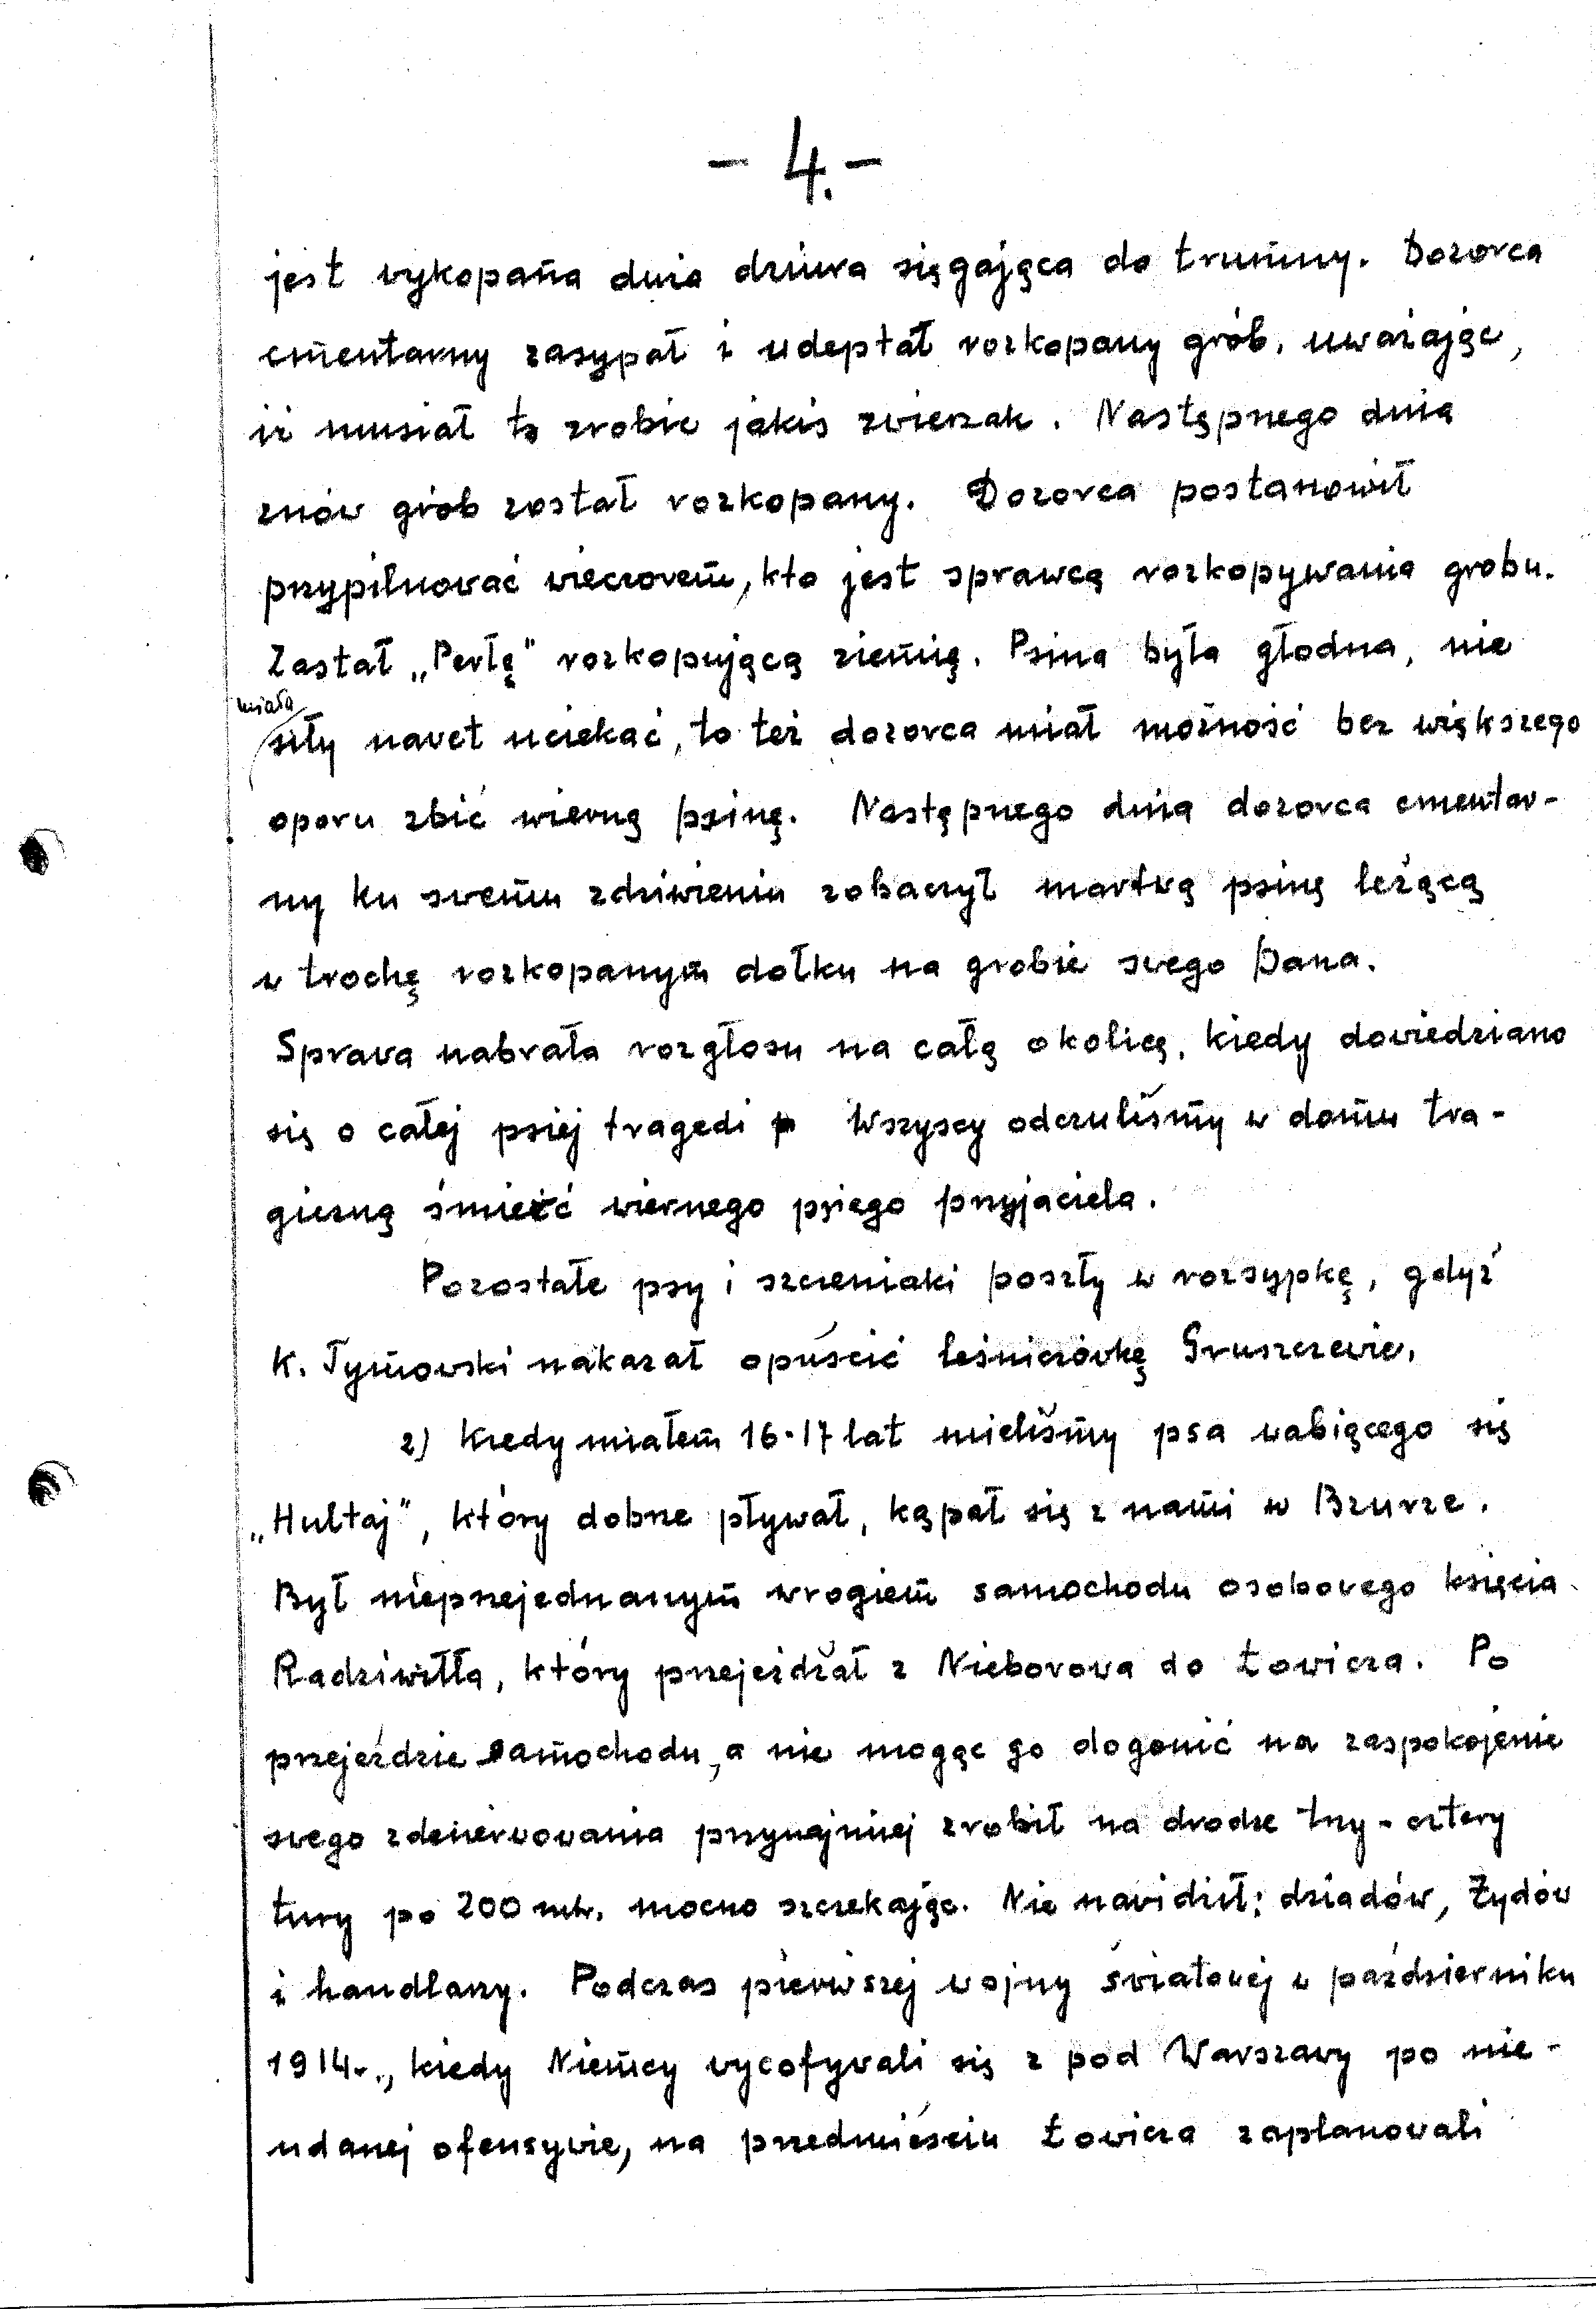 - 4. -
jest wykopana duża dziura sięgająca do trumny. Dozorca
cmentarny zasypał i udeptał rozkopany grób, uważając,
iż musiał to zrobić jakiś zwierzak. Następnego dnia
znów grób został rozkopany. Dozorca postanowił
przypilnować wieczorem, kto jest sprawcą rozkopywania grobu.
Zastał „Perłę" rozkopującą ziemię. Psina była głodna, nie
miała
siły nawet uciekać, to też dozorca miał możność bez większego
oporu zbić wierną psinę. Następnego dnia dozorca cmentar-
ny ku swemu zdziwieniu zobaczył martwą psinę leżącą
w trochę rozkopanym dołku na grobie swego Pana.
Sprawa nabrała rozgłosu na całą okolicę, kiedy dowiedziano
się o całej psiej tragedi Wszyscy odczuliśmy w domu tra-
giczną śmierć wiernego psiego przyjaciela.
Pozostałe psy i szczeniaki poszły w rozsypkę, gdyż
K. Tymowski nakazał opuścić leśniczówkę Gruszczewie.
2) Kiedy miałem 16-17 lat mieliśmy psa wabiącego się
„Hultaj", który dobrze pływał, kąpał się z nami w Bzurze.
Był nieprzejednanym wrogiem samochodu osobowego księcia
Radziwiłła, który przejeżdżał z Nieborowa do Łowicza. Po
przejeździe samochodu, a nie mogąc go dogonić na zaspokojenie
swego zdenerwowania przynajmniej zrobił na drodze trzy-cztery
tury po 200 mtr. mocno szczekając. Nie nawidził: dziadów, Żydów
i handlarzy. Podczas pierwszej wojny światowej w październiku
1914r., kiedy Niemcy wycofywali się z pod Warszawy po nie-
udanej ofensywie, na przedmieściu Łowicza zaplanowali